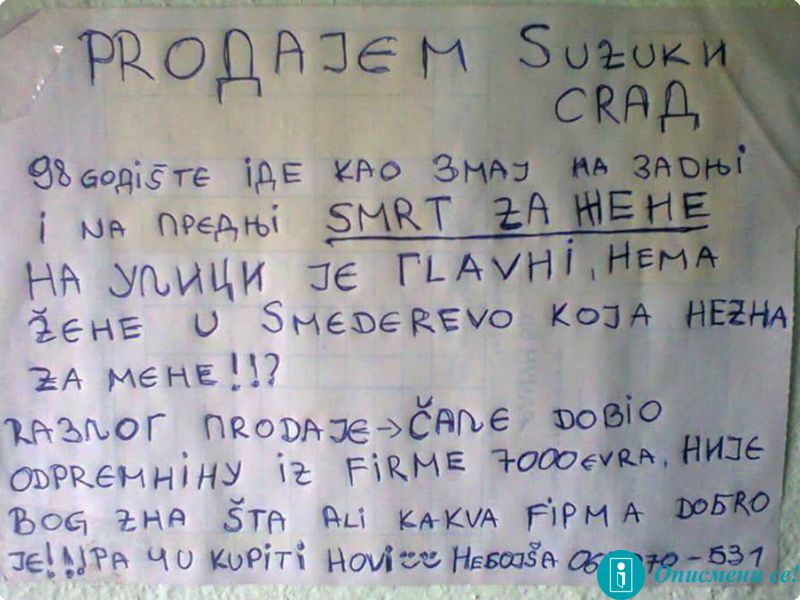 PRОДАЈЕМ SUZUKИ
CRAД
98 GODiŠTЄ iДЕ KAO ЗMAJ НА ЗАDЊi
i NA ПРЕДЊi SMRT ZA ЖЕНЕ
НА УЉИЦИ ЈЕ ГLAVНi, НЕМА
ŽЕНЕ U SMEDEREVO KOJA НЕZНА
ZA MЕНЕ!!!?
RАЗЛОГ ПRODAJE→ČAЉЕ DOBiO
ODPREMНiНУ iZ FiRME 7000 EVRA, НИЈЕ
BOG ZНА ŠTA ALi KAKVA FiРМА DОБRO
JE!!!JPA ЧU KUPiTi НОVi НЕБОЈŠА -531
Описмени се!